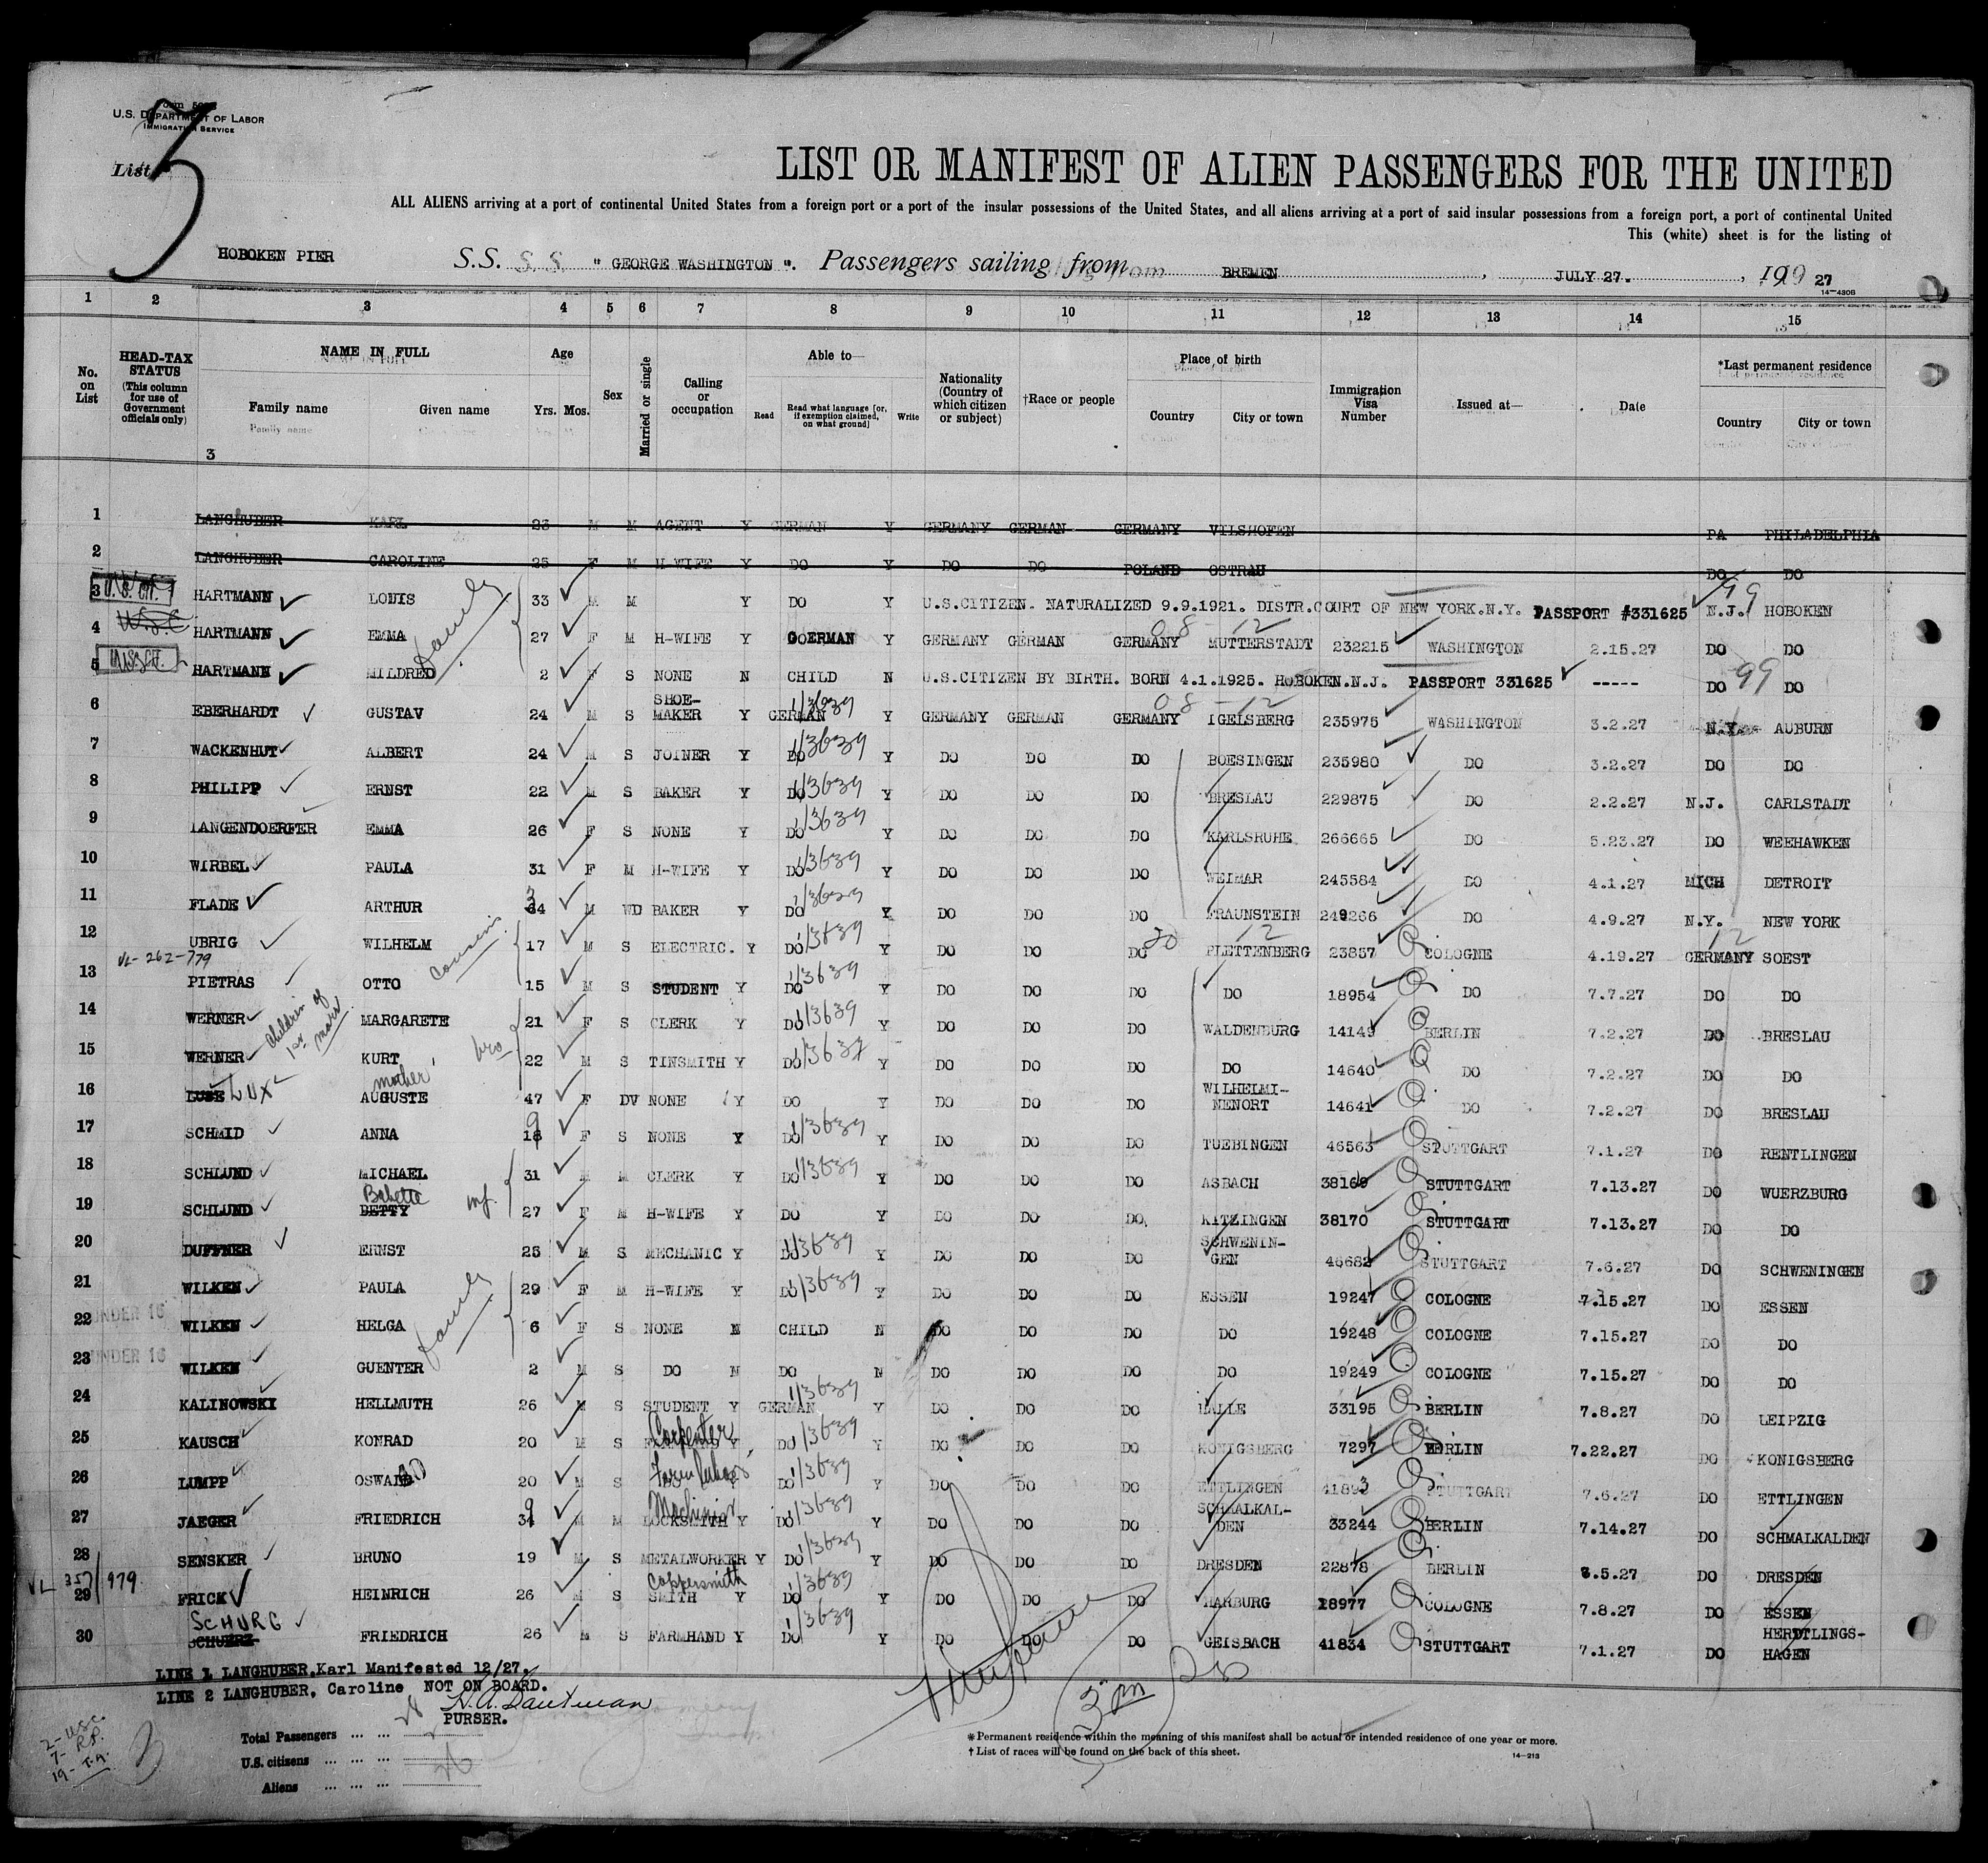 U.S. DEPARTMENT OF LABOR
IMMIGRATION SERVICE
List 3
LIST OR MANIFEST OF ALIEN PASSENGERS FOR THE UNITED
ALL ALIENS arriving at a port of continental United States from a foreign port or a port of the insular possessions of the United States, and all aliens arriving at a port of said insular possessions from a foreign port, a port of continental United
This (white) sheet is for the listing of
HOBOKEN PIER S.S. S.S. "GEORGE WASHINGTON". Passengers sailing from BREMEN, JULY 27., 19 27
14-430B
1 2 3 4 5 6 7 8 9 10 11 12 13 14 15
No. on List
HEAD-TAX STATUS (This column for use of Government officials only)
NAME IN FULL Family name Given name
Age Yrs. Mos.
Sex
Married or single
Calling or occupation
Able to— Read Read what language [or, if exemption claimed, on what ground] Write
Nationality (Country of which citizen or subject)
†Race or people
Place of birth Country City or town
Immigration Visa Number
Issued at—
Date
*Last permanent residence Country City or town
3
1 LANGHUBER KARL 23 M M AGENT Y GERMAN Y GERMANY GERMAN GERMANY VILSHOFEN PA PHILADELPHIA
2 LANGHUBER CAROLINE 25 F M H-WIFE Y DO Y DO DO POLAND OSTRAU DO DO
3 U.S. CIT. HARTMANN LOUIS family 33 M M Y DO Y U.S.CITIZEN. NATURALIZED 9.9.1921. DISTR.COURT OF NEW YORK.N.Y. PASSPORT #331625 N.J. 99 HOBOKEN
4 U.S.C HARTMANN EMMA 27 F M H-WIFE Y GERMAN Y GERMANY GERMAN GERMANY 08-12 MUTTERSTADT 232215 WASHINGTON 2.15.27 DO DO
5 U.S. CIT. HARTMANN MILDRED 2 F S NONE N CHILD N U.S.CITIZEN BY BIRTH. BORN 4.1.1925. HOBOKEN.N.J. PASSPORT 331625 ----- DO 99 DO
6 EBERHARDT GUSTAV 24 M S SHOE-MAKER Y GERMAN 113639 Y GERMANY GERMAN GERMANY 08-12 IGELSBERG 235975 WASHINGTON 3.2.27 N.Y. AUBURN
7 WACKENHUT ALBERT 24 M S JOINER Y DO 113639 Y DO DO DO BOESINGEN 235980 DO 3.2.27 DO DO
8 PHILIPP ERNST 22 M S BAKER Y DO 113639 Y DO DO DO BRESLAU 229875 DO 2.2.27 N.J. CARLSTADT
9 LANGENDOERFER EMMA 26 F S NONE Y DO 113639 Y DO DO DO KARLSRUHE 266665 DO 5.23.27 DO WEEHAWKEN
10 WIRBEL PAULA 31 F M H-WIFE Y DO 113639 Y DO DO DO WEIMAR 245584 DO 4.1.27 MICH DETROIT
11 FLADE ARTHUR 34 M WD BAKER Y DO 113639 Y DO DO DO TRAUNSTEIN 249266 DO 4.9.27 N.Y. NEW YORK
12 UBRIG WILHELM cousins 17 M S ELECTRIC. Y DO 113639 Y DO DO DO 20 12 PLETTENBERG 23857 COLOGNE 4.19.27 GERMANY 12 SOEST
VL-262-779
13 PIETRAS OTTO 15 M S STUDENT Y DO 113639 Y DO DO DO DO 18954 DO 7.7.27 DO DO
14 WERNER children of 1st marr MARGARETE 21 F S CLERK Y DO 113639 Y DO DO DO WALDENBURG 14149 BERLIN 7.2.27 DO BRESLAU
15 WERNER KURT bro 22 M S TINSMITH Y DO 113639 Y DO DO DO DO 14640 DO 7.2.27 DO DO
16 LUX mother AUGUSTE 47 F DV NONE Y DO Y DO DO DO WILHELMI-NENORT 14641 DO 7.2.27 DO BRESLAU
17 SCHMID ANNA 19 F S NONE Y DO 113639 Y DO DO DO TUEBINGEN 46563 STUTTGART 7.1.27 DO RENTLINGEN
18 SCHLUND MICHAEL 31 M M CLERK Y DO 113639 Y DO DO DO ASBACH 38169 STUTTGART 7.13.27 DO WUERZBURG
19 SCHLUND Babette BETTY 27 F M H-WIFE Y DO Y DO DO DO KITZINGEN 38170 STUTTGART 7.13.27 DO DO
20 DUFFNER ERNST 25 M S MECHANIC Y DO 113639 Y DO DO DO SCHWENIN-GEN 46682 STUTTGART 7.6.27 DO SCHWENINGEN
21 WILKEN PAULA family 29 F M H-WIFE Y DO 113639 Y DO DO DO ESSEN 19247 COLOGNE 7.15.27 DO ESSEN
22 UNDER 16 WILKEN HELGA 6 F S NONE N CHILD N DO DO DO DO 19248 COLOGNE 7.15.27 DO DO
23 UNDER 16 WILKEN GUENTER 2 M S DO N DO N DO DO DO DO 19249 COLOGNE 7.15.27 DO DO
24 KALINOWSKI HELLMUTH 26 M S STUDENT Y GERMAN 113639 Y DO DO DO HALLE 33195 BERLIN 7.8.27 DO LEIPZIG
25 KAUSCH KONRAD 20 M S Carpenter Y DO 113639 Y DO DO DO KONIGSBERG 7297 BERLIN 7.22.27 DO KONIGSBERG
26 LUMPP OSWALD 20 M S Farm Y DO 113639 Y DO DO DO ETTLINGEN 41893 STUTTGART 7.6.27 DO ETTLINGEN
27 JAEGER FRIEDRICH 39 M M Machinist LOCKSMITH Y DO 113639 Y DO DO DO SCHMALKAL-DEN 33244 BERLIN 7.14.27 DO SCHMALKALDEN
28 SENSKER BRUNO 19 M S METALWORKER Y DO 113639 Y DO DO DO DRESDEN 22878 BERLIN 5.27 DO DRESDEN
VL 357/979
29 FRICK HEINRICH 26 M S Coppersmith SMITH Y DO 113639 Y DO DO DO HARBURG 18977 COLOGNE 7.8.27 DO ESSEN
30 SCHURG SCHUERZ FRIEDRICH 26 M S FARMHAND Y DO 113639 Y DO DO DO GEISBACH 41834 STUTTGART 7.1.27 DO HAGEN
LINE 1 LANGHUBER, Karl Manifested 12/27.
LINE 2 LANGHUBER, Caroline NOT ON BOARD.
PURSER.
3 pm
2-USC
7-R.P.
19-T.A.
Total Passengers ... ... 28
U.S. citizens ... ... ... 2
Aliens ... ... ... 26
*Permanent residence within the meaning of this manifest shall be actual or intended residence of one year or more.
†List of races will be found on the back of this sheet.
14-213